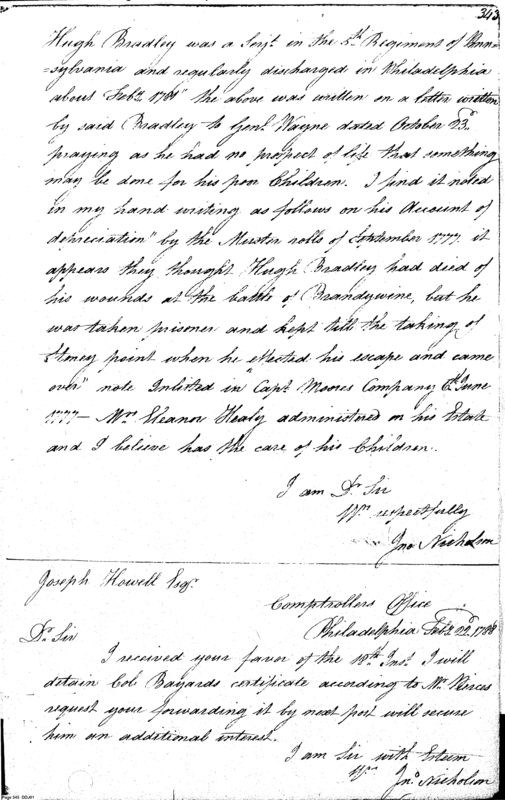 343
Hugh Bradley was a Serjt. in the 5th Regiment of Penn-
=sylvania and regularly discharged in Philadelphia
about Feby. 1781" the above was written on a letter written
by said Bradley to Genl. Wayne dated October 23d.
praying as he had no prospect of life that something
may be done for his poor Children. I find it noted
in my hand writing as follows on his Account of
depreciation" by the Muster rolls of September 1777. it
appears they thought Hugh Bradley had died of
his wounds at the battle of Brandywine, but he
was taken prisoner and kept till the taking of
Stoney point when he effected his escape and came
over" note Inlisted in Capt. Moores Company 6th June
1777 — Mrs. Eleanor Healy administered on his Estate
and I believe has the care of his Children.
I am Dr. Sir
Yrs. respectfully
Jno. Nicholson
Joseph Howell Esqr.
Comptrollers Office
Philadelphia Feby. 22d. 1788
Dr. Sir
I received your favor of the 18th Inst. I will
detain Col. Bayards certificate according to Mr. Pierces
request your forwarding it by next post will secure
him an additional interest.
I am Sir with Esteem
Yrs.
Jno. Nicholson
Page 343 DDJ01